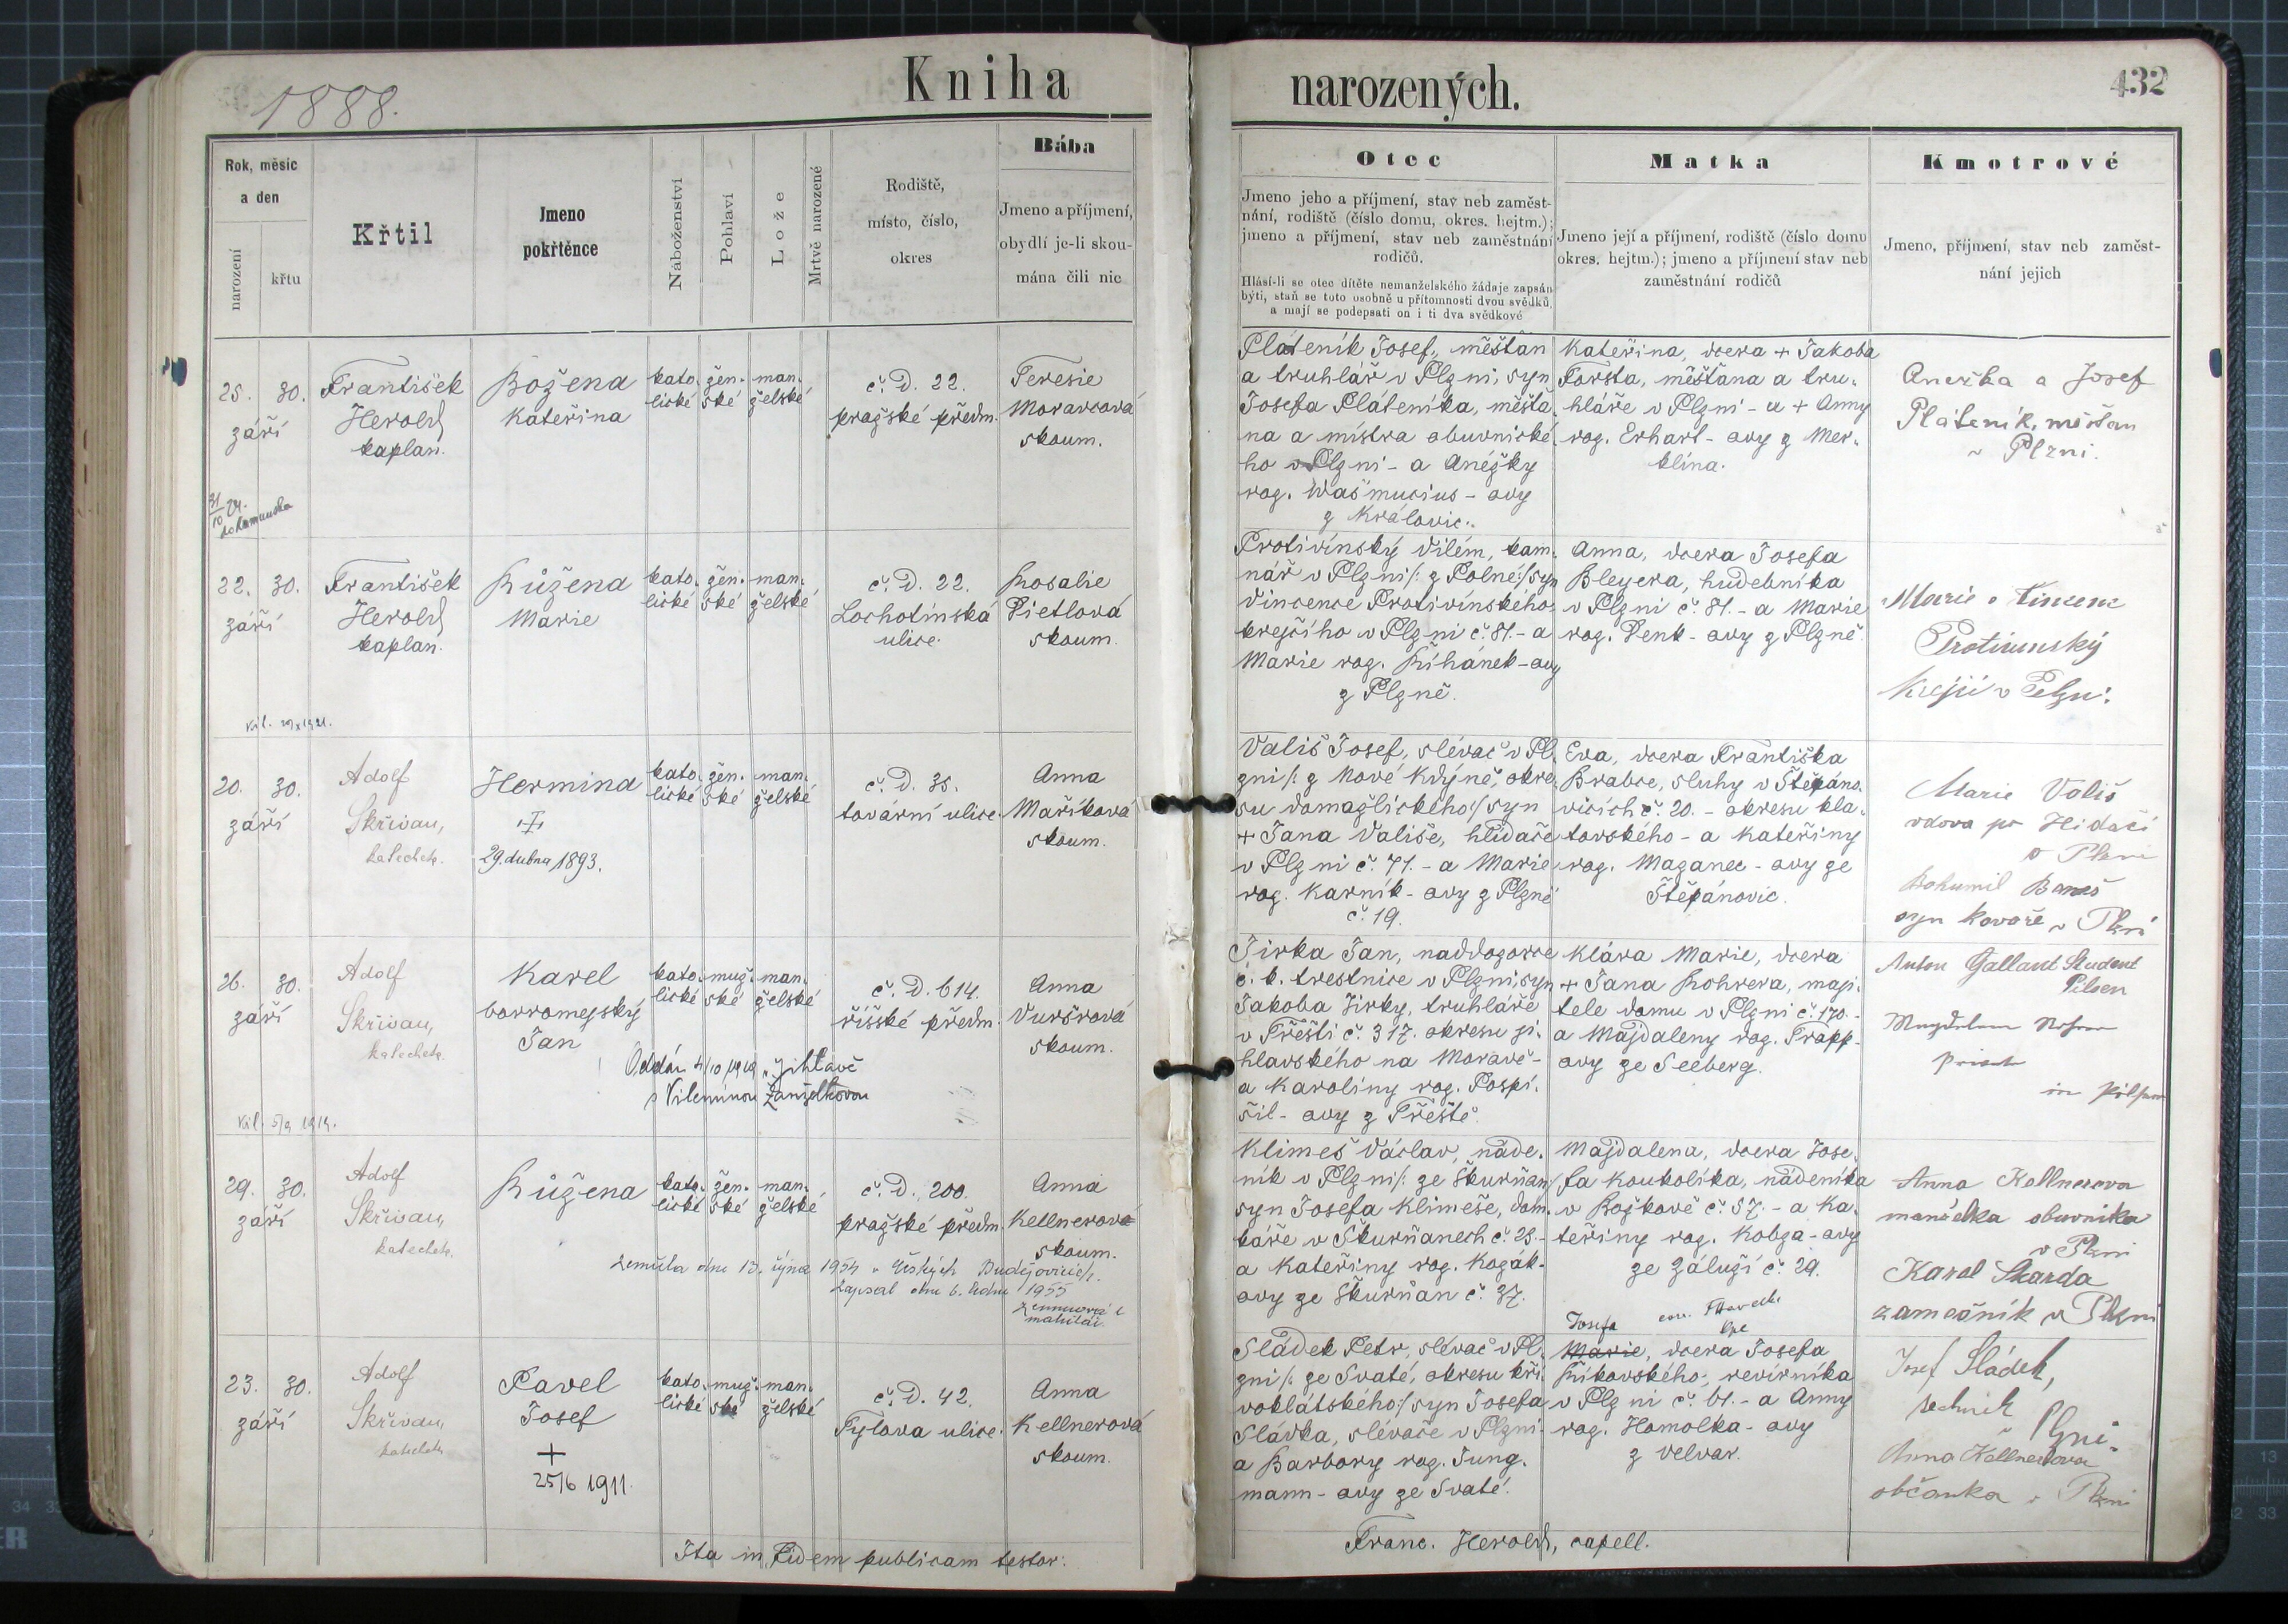 Kniha
narozených.
432
1888.
Rok, měsíc
a den
narození
křtu
Křtil
Jmeno
pokřtěnce
Náboženství
Pohlaví
Lože
Mrtvě narozené
Rodiště,
místo, číslo,
okres
Bába
Jmeno a příjmení,
obydlí je-li skou-
mána čili nic
Otec
Jmeno jeho a příjmení, stav neb zaměst-
nání, rodiště (číslo domu, okres. hejtm.);
jmeno a příjmení, stav neb zaměstnání
rodičů.
Hlásí-li se otec dítěte nemanželského žádaje zapsán
býti, staň se toto osobně u přítomnosti dvou svědků,
a mají se podepsati on i ti dva svědkové
Matka
Jmeno její a příjmení, rodiště (číslo domu
okres. hejtm.); jmeno a příjmení stav neb
zaměstnání rodičů
Kmotrové
Jmeno, příjmení, stav neb zaměst-
nání jejich
25. 30.
září
František
Herold
kaplan.
Božena
Kateřina
kato- žen- man-
lické ské želské
č. D. 22.
pražské předm.
Teresie
Moravcová
skoum.
Pláteník Josef, měšťan
a truhlář v Plzni, syn
Josefa Pláteníka, měšťa-
na a mistra obuvnické-
ho v Plzni - a Anéžky
roz. Wašmucius - ovy
z Královic.
Kateřina, dcera + Jakoba
Forsta, měšťana a tru-
hláře v Plzni - a + Anny
roz. Erhart - ovy z Mer-
klína.
Anežka a Josef
Pláteník, měšťan
v Plzni.
31/10 24.
22. 30.
září
František
Herold
kaplan.
Růžena
Marie
kato- žen- man-
lické ské želské
č. D. 22.
Lochotínská
ulice.
Rosalie
Pietlová
skoum.
Protivínský Vilém, kam-
nář v Plzni /: z Polné :/ syn
Vincence Protivínského,
krejčího v Plzni č. 81. - a
Marie roz. Řihánek - ovy
z Plzně.
Anna, dcera Josefa
Bleyera, hudebníka
v Plzni č. 81. - a Marie
roz. Denk - ovy z Plzně.
Marie a Vincenc
Protivínský
Krejčí v Plzni.
20. 30.
září
Adolf
Skřivan,
katecheta.
Hermina
29. dubna 1893.
kato- žen- man-
lické ské želské
č. D. 35.
tovární ulice.
Anna
Maříková
skoum.
Vališ Josef, slévač v Pl-
zni /: z Nové Kdýně, okre-
su domažlického :/ syn
+ Jana Vališe, hlídače
v Plzni č. 71. - a Marie
roz. Karník - ovy z Plzně
č. 19.
Eva, dcera Františka
Brabce, sluhy v Štěpáno-
vicích č. 20. - okresu kla-
tovského - a Kateřiny
roz. Mazanec - ovy ze
Štěpánovic.
Marie Vališ
vdova po Hlidači
v Plzni
Bohumil Bureš
syn kovaře v Plzni
26. 30.
září
Adolf
Skřivan,
katecheta.
Karel
borromejský
Jan
kato- muž- man-
lické ské želské
č. D. 614.
říšské předm.
Anna
Vuršrová
skoum.
Oddán 4/10 1919 v Jihlavě
s Vilemínou
Jirka Jan, naddozorce
c. k. trestnice v Plzni, syn
Jakoba Jirky, truhláře
v Třešti č. 317. okresu ji-
hlavského na Moravě -
a Karoliny roz. Pospí-
šil - ovy z Třeště.
Klára Marie, dcera
+ Jana Rohrera, maji-
tele domu v Plzni č. 170. -
a Majdaleny roz. Trapp-
ovy ze Seeberg.
Anton Galland Student
Pilsen
in Pilsen
29. 30.
září
Adolf
Skřivan,
katecheta.
Růžena
kato- žen- man-
lické ské želské
č. D. 200.
pražské předm.
Anna
Kellnerová
skoum.
Zemřela dne 13. října 1954 v Českých Budějovicích.
Zapsal dne 6. ledna 1955
Klimeš Václav, náde-
ník v Plzni /: ze Škurňan
syn Josefa Klimeše, dom-
káře v Škurňanech č. 25. -
a Kateřiny roz. Kozák-
ovy ze Škurňan č. 37.
Majdalena, dcera Jose-
fa Koukolíka, nádeníka
v Božkově č. 57. - a Ka-
teřiny roz. Kobza - ovy
ze Záluží č. 29.
Anna Kellnerova
manželka obuvníka
v Plzni
Karel Skarda
zamečník v Plzni
23. 30.
září
Adolf
Skřivan,
katecheta
Pavel
Josef
+
25/6 1911.
kato- muž- man-
lické ské želské
č. D. 42.
Tylova ulice.
Anna
Kellnerová
skoum.
Sládek Petr, slévač v Pl-
zni /: ze Svaté, okresu kři-
voklátského :/ syn Josefa
Sládka, slévače v Plzni -
a Barbory roz. Jung-
mann - ovy ze Svaté.
Josefa
Marie, dcera Josefa
Říkovského, revírníka
v Plzni č. 61. - a Anny
roz. Homolka - ovy
z Velvar.
Josef Sládek,
technik
Plzni.
Anna Kellnerova
občanka v Plzni
Ita in Fidem publicam testor:
Franc. Herold, capell.